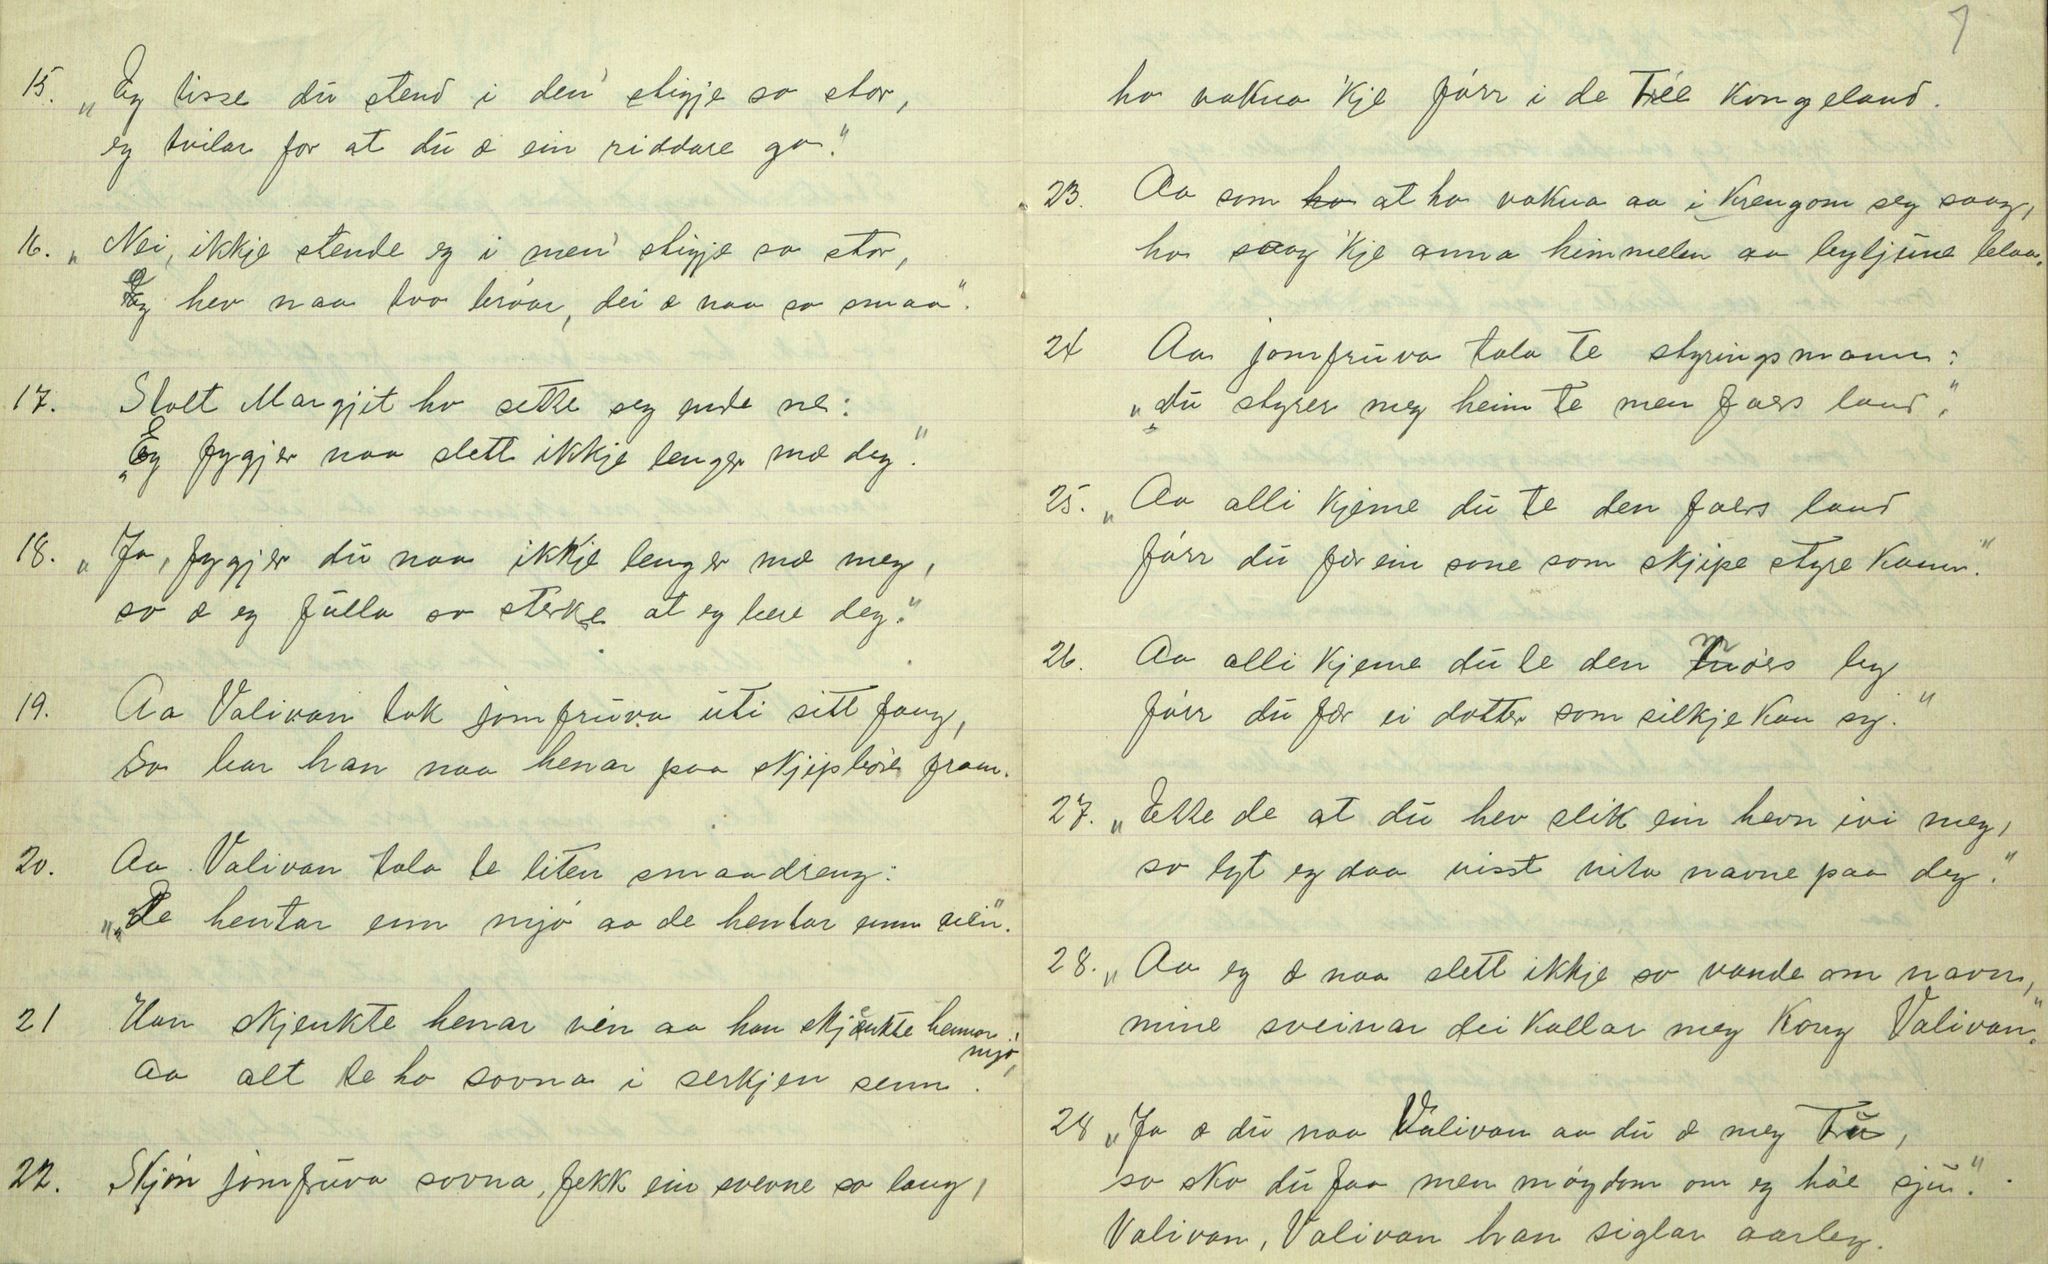 15. „Eg tisse du stend i den stigje so stor,
eg tvilar for at du æ ein riddare go."
16. „Nei, ikkje stende eg i men stigje so stor,
Eg hev naa tvo bröar, dei æ naa so smaa".
17. Stolt Margjit ho sette seg nede ne:
„Eg fygjer naa slett ikkje lenger mæ deg."
18. „Ja, fygjer du naa ikkje lenger mæ meg,
so æ eg fulla so sterke at eg bere deg."
19. Aa Valivan tok jomfruva uti sitt fang,
So bar han naa henar paa skjipböre fram.
20. Aa Valivan tala te liten smaadreng:
„De hentar enn mjö aa de hentar enn vin".
21 Han skjenkte henar vin aa han skjenkte hennar mjö,
aa alt te ho sovna i serkjen senn.
22. Skjön jomfruva sovna, fekk ein svevne so lang,
7
ho vakna 'kje förr i de Trée Kongeland.
23. Aa som ho at ho vakna aa i kringom seg saag,
ho saag 'kje anna himmelen aa bylgjune blaa.
24 Aa jomfruva tala te styringsmann:
„du styrer meg heim te men faers land".
25. „Aa alli kjeme du te den faers land
förr du fær ein sone som skjipe styre kann."
26. Aa alli kjeme du te den möers by
förr du fær ei dotter som silkje kan sy."
27. „Ette de at du hev slik ein hevn ivi meg,
so lyt eg daa visst vita navne paa deg."
28. „Aa eg æ naa slett ikkje so vande om navn,
mine sveinar dei kallar meg Kong Valivan."
28 „Ja æ du naa Valivan aa du æ meg Tru,
so ska du faa men möydom om eg hae sju."
Valivan, Valivan han siglar aarleg.